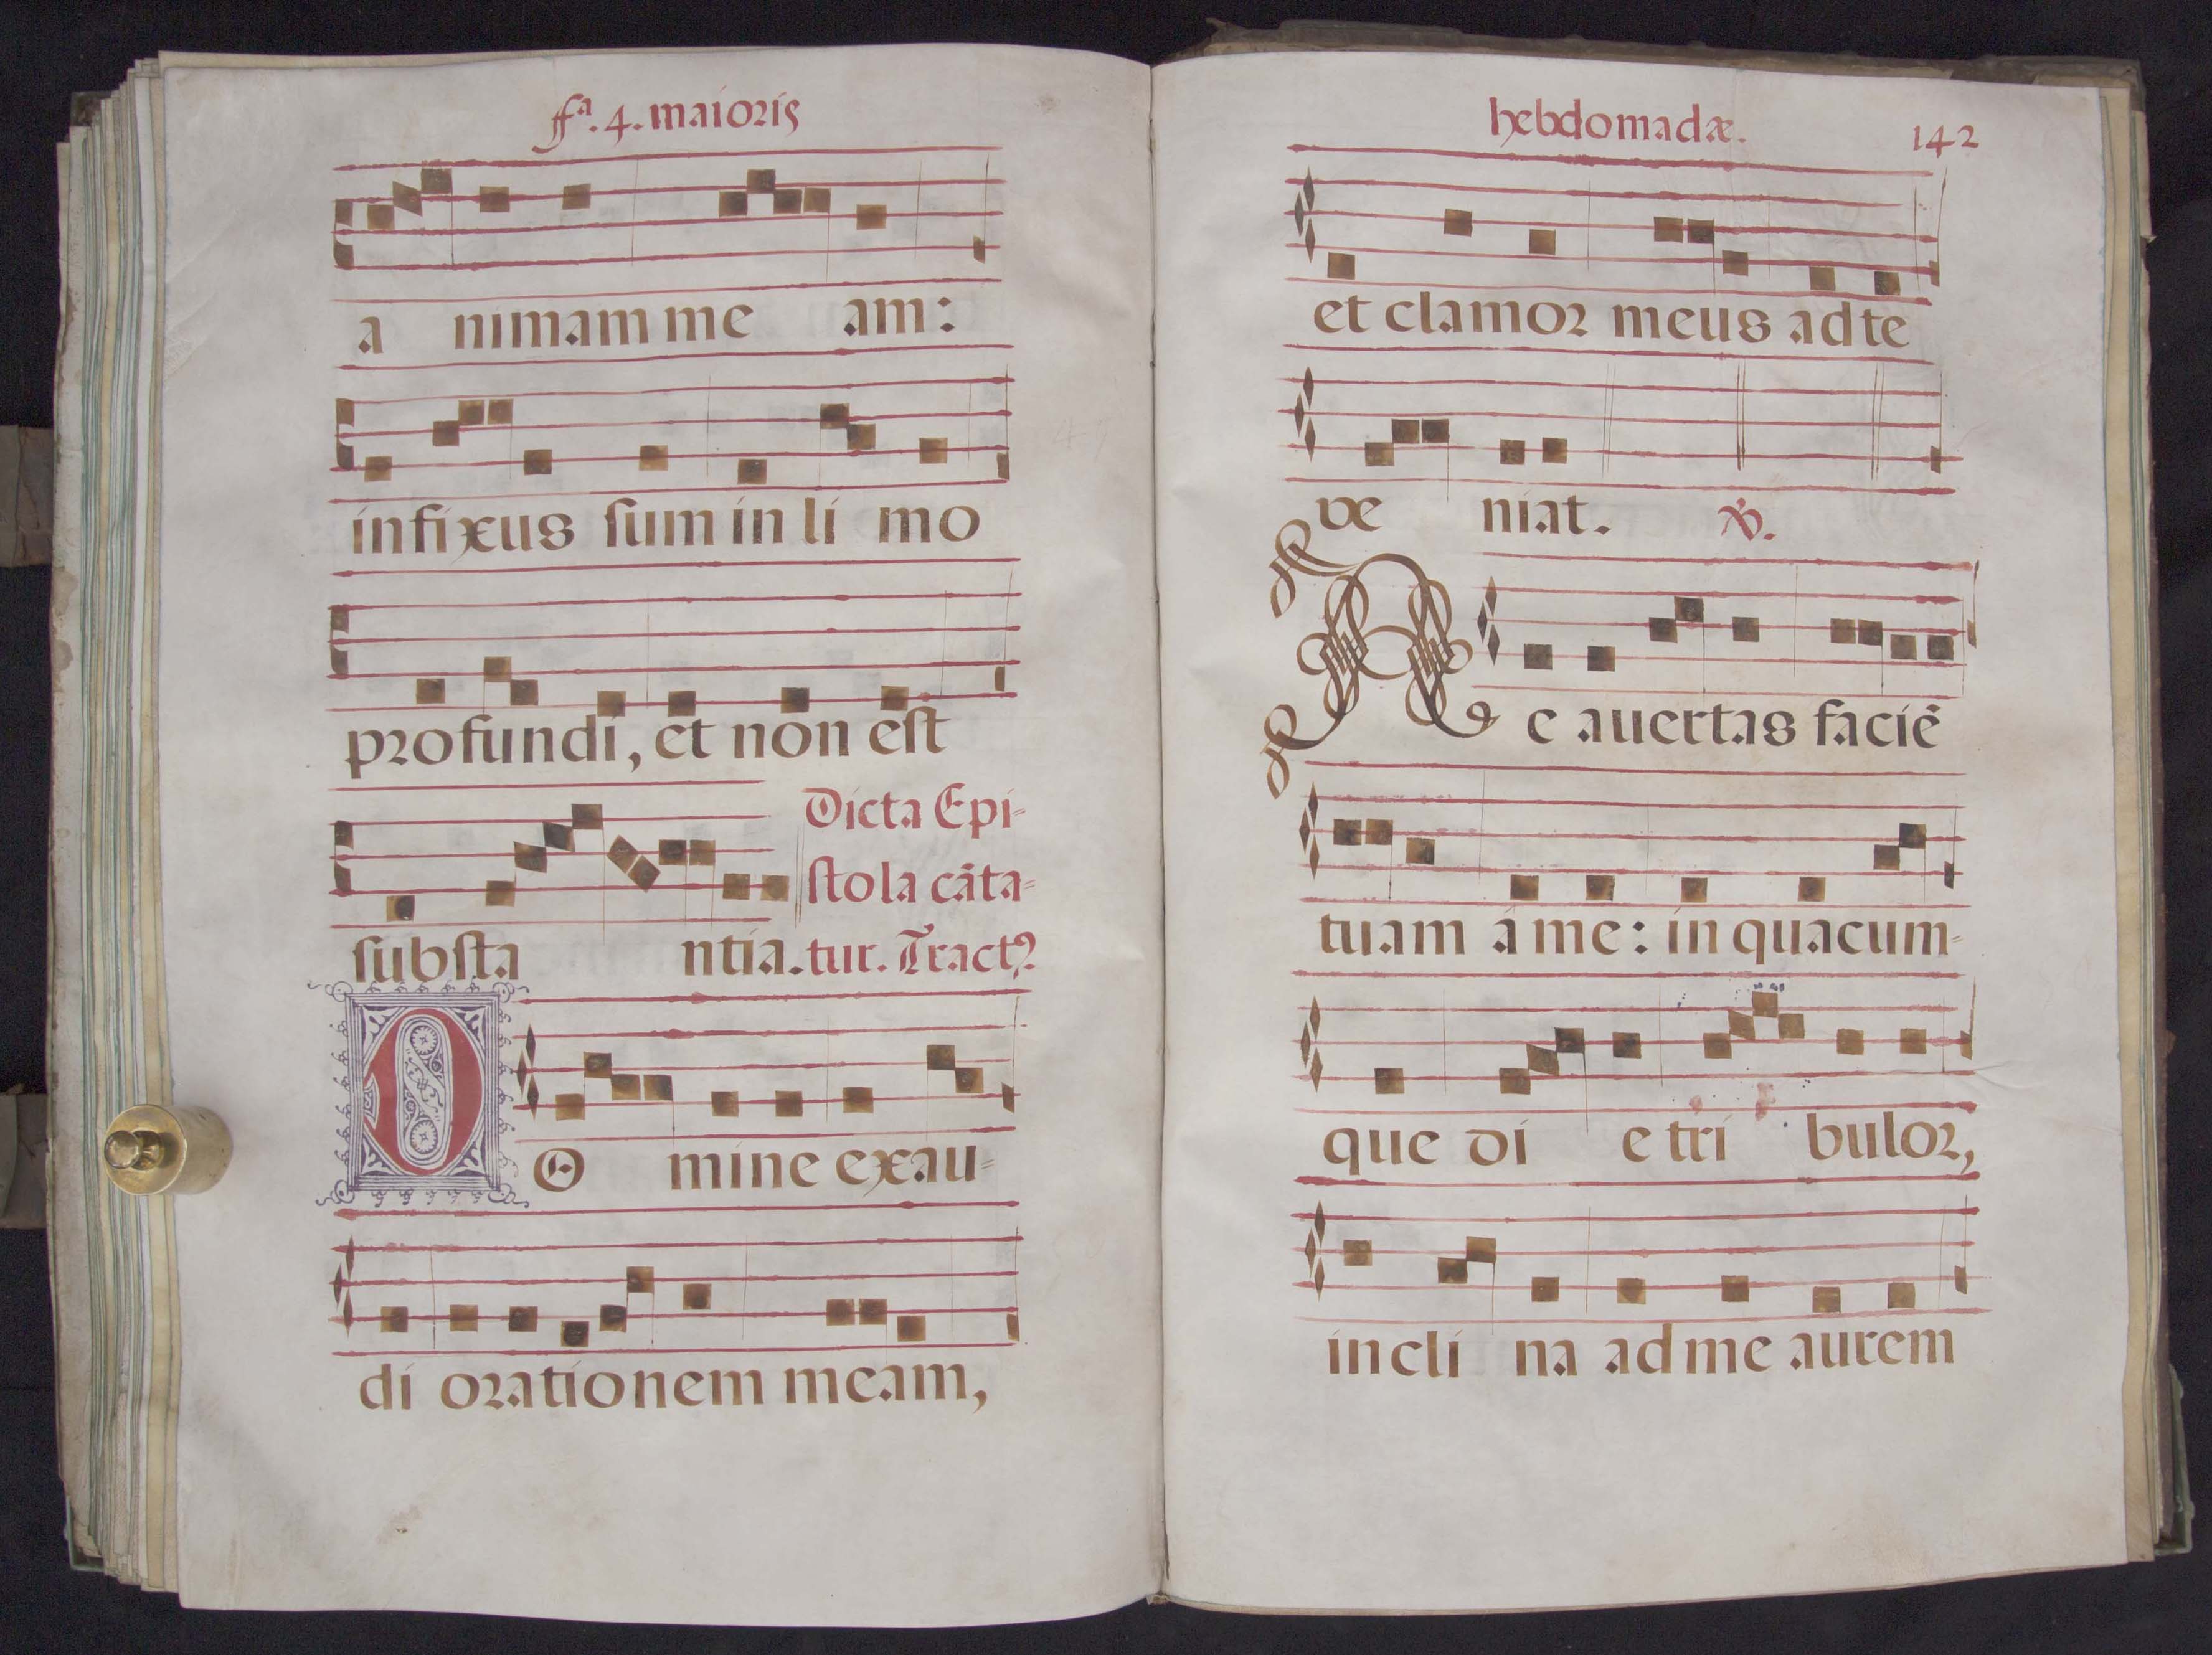 ffª. 4. maioris
a nimam me am:
infixus sum in li mo
profundi, et non est
Dicta Epi-
stola cāta-
substa ntia. tur. Tractꝰ
DO mine exau-
di orationem meam,
hebdomadæ. 142
et clamor meus ad te
ve niat. ℣.
Ne auertas faciē
tuam á me: in quacum-
que di e tri bulor,
incli na ad me aurem